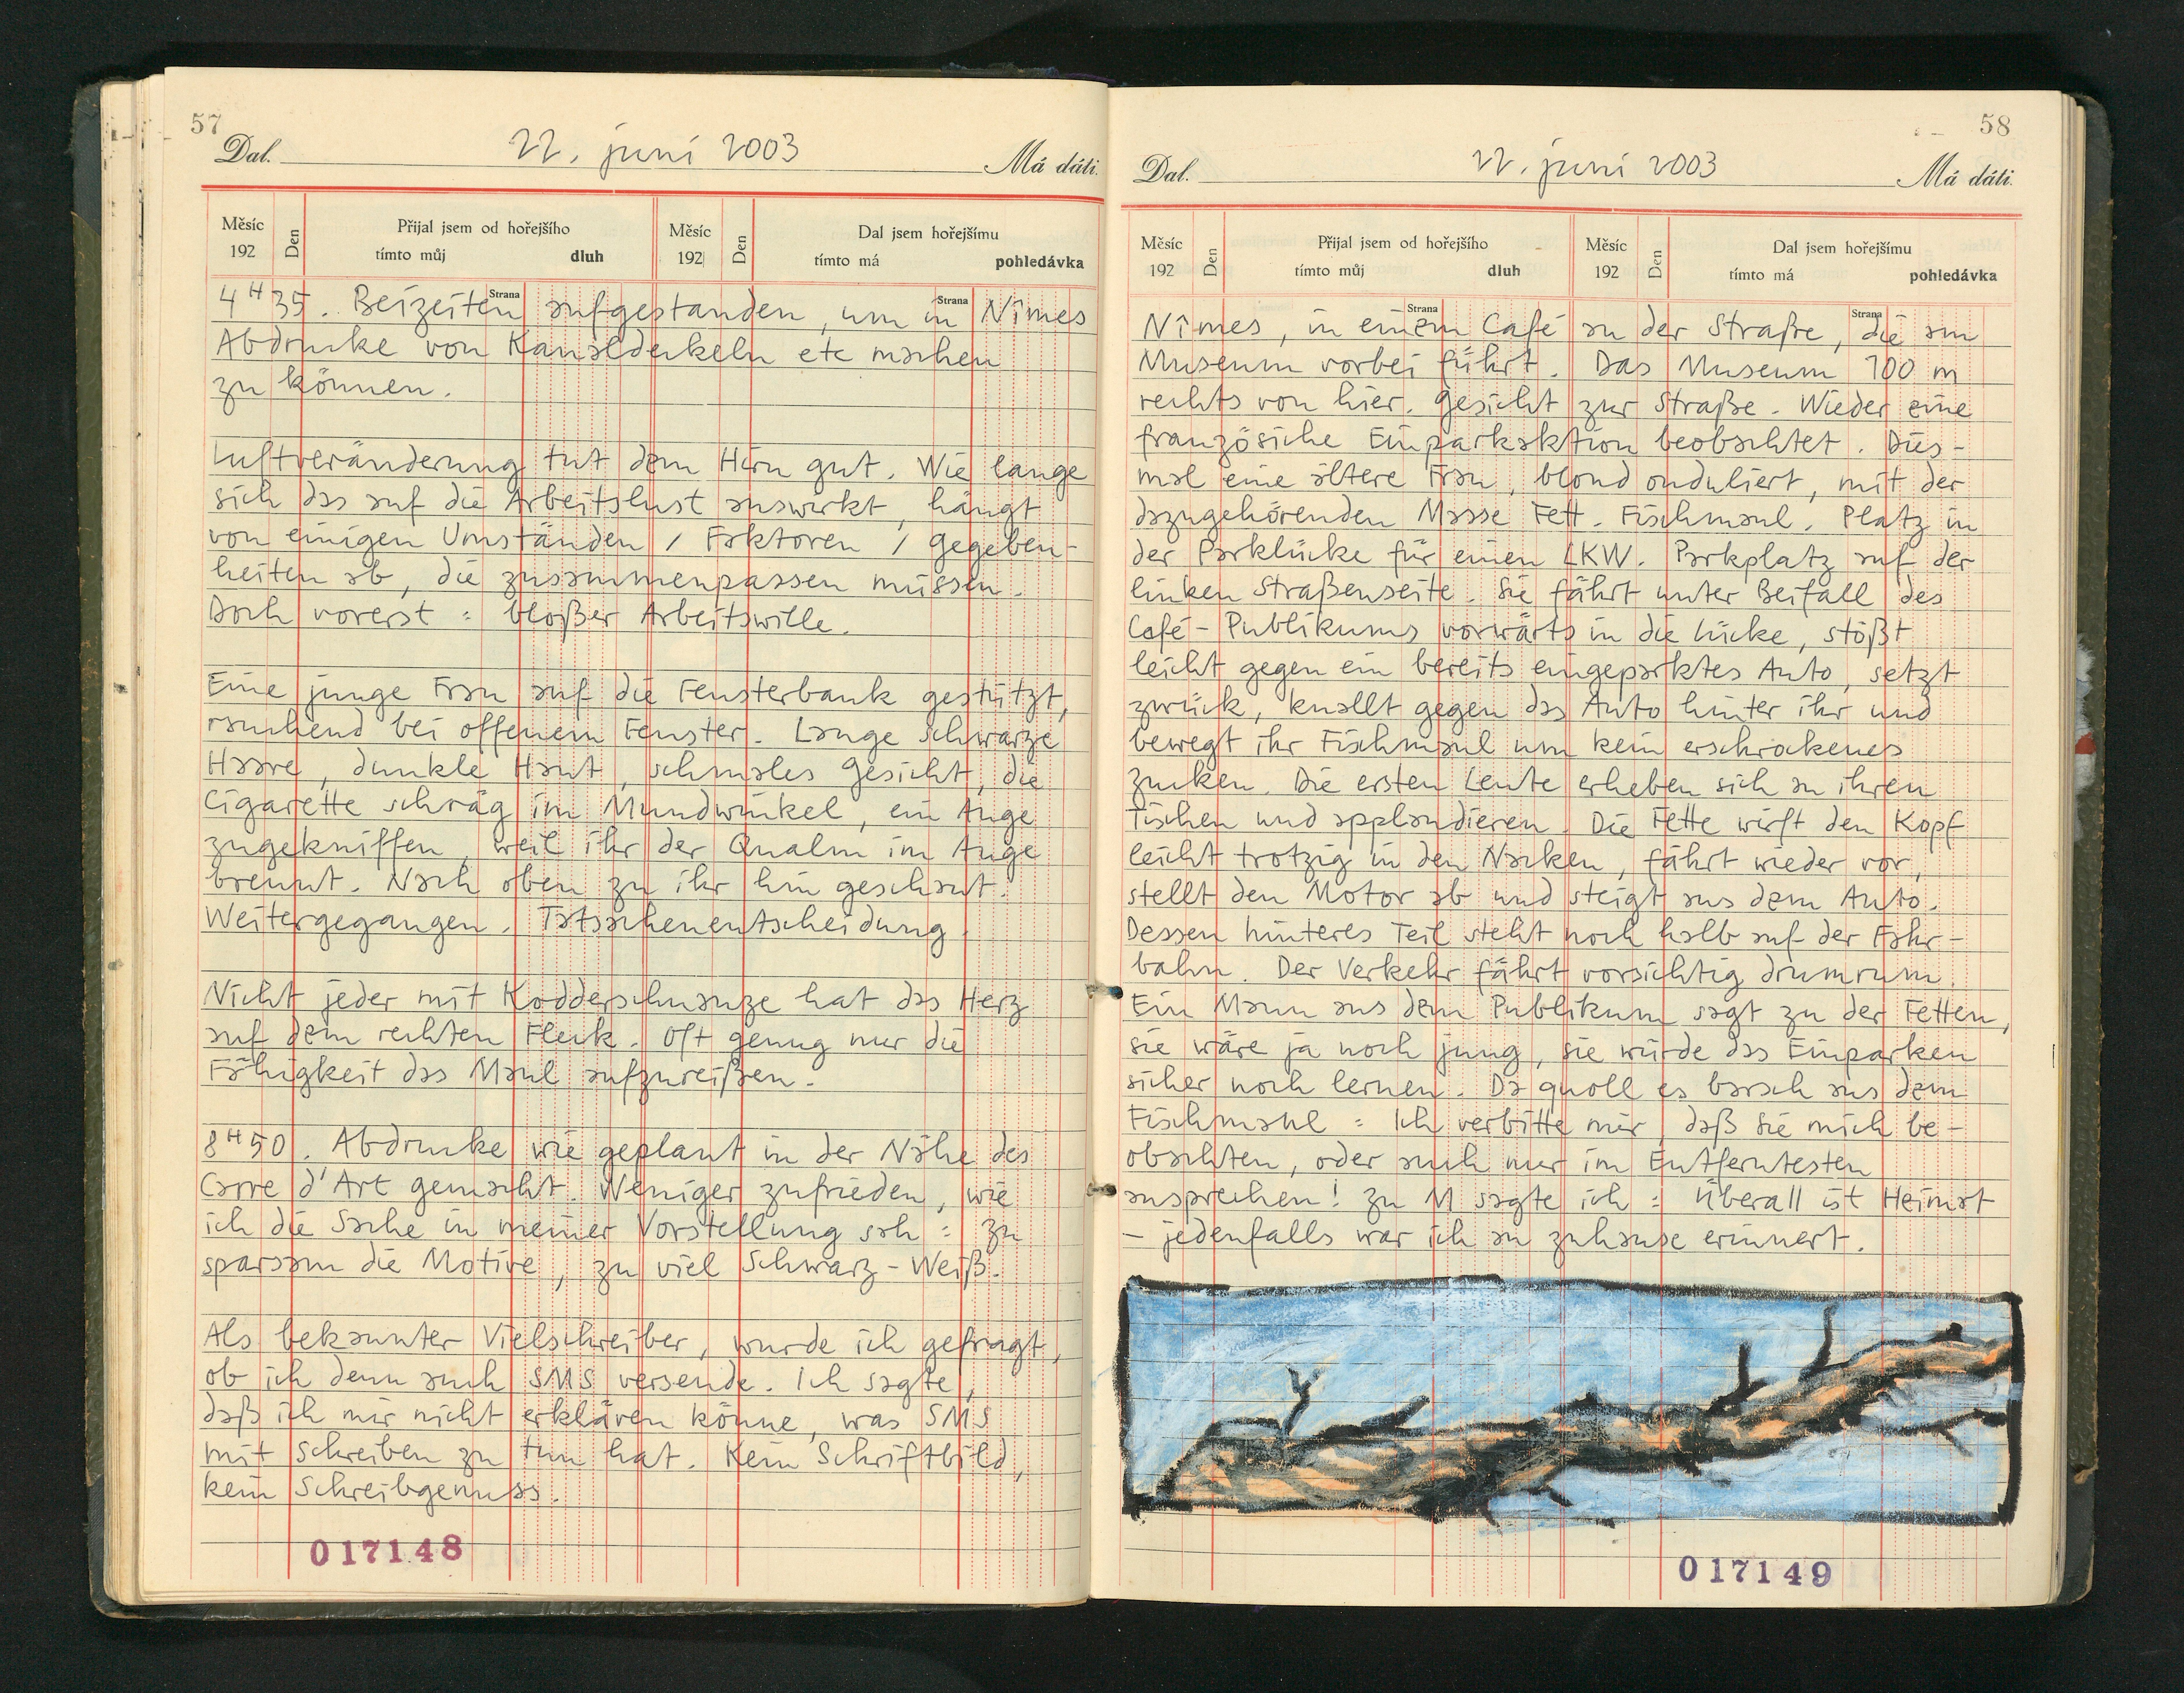 57
Dal. 22. juni 2003 Má dáti.
Měsíc 192 Den Přijal jsem od hořejšího tímto můj dluh Měsíc 192 Den Dal jsem hořejšímu tímto má pohledávka
Strana Strana
4H35. Beizeiten aufgestanden, um in Nîmes
Abdrucke von Kanaldeckeln etc machen
zu können.
Luftveränderung tut dem Hirn gut. Wie lange
sich das auf die Arbeitslust auswirkt, hängt
von einigen Umständen / Faktoren / Gegeben-
heiten ab, die zusammenpassen müssen.
Doch vorerst : bloßer Arbeitswille.
Eine junge Frau auf die Fensterbank gestützt,
rauchend bei offenem Fenster. Lange schwarze
Haare, dunkle Haut, schmales Gesicht, die
Cigarette schräg im Mundwinkel, ein Auge
zugekniffen, weil ihr der Qualm im Auge
brennt. Nach oben zu ihr hin geschaut.
Weitergegangen. Tatsachenentscheidung.
Nicht jeder mit Kodderschnauze hat das Herz
auf dem rechten Fleck. Oft genug nur die
Fähigkeit das Maul aufzureißen.
8H50. Abdrucke wie geplant in der Nähe des
Carre d'Art gemacht. Weniger zufrieden, wie
ich die Sache in meiner Vorstellung sah : zu
sparsam die Motive, zu viel Schwarz-Weiß.
Als bekannter Vielschreiber, wurde ich gefragt,
ob ich denn auch SMS versende. Ich sagte,
daß ich mir nicht erklären könne, was SMS
mit Schreiben zu tun hat. Kein Schriftbild,
kein Schreibgenuss.
017148
58
Dal. 22. juni 2003 Má dáti.
Měsíc 192 Den Přijal jsem od hořejšího tímto můj dluh Měsíc 192 Den Dal jsem hořejšímu tímto má pohledávka
Strana Strana
Nîmes, in einem Café an der Straße, die am
Museum vorbei führt. Das Museum 100 m
rechts von hier. Gesicht zur Straße. Wieder eine
französiche Einparkaktion beobachtet. Dies-
mal eine ältere Frau, blond onduliert, mit der
dazugehörenden Masse Fett. Fischmaul. Platz in
der Parklücke für einen LKW. Parkplatz auf der
linken Straßenseite. Sie fährt unter Beifall des
Café-Publikums vorwärts in die Lücke, stößt
leicht gegen ein bereits eingeparktes Auto, setzt
zurück, knallt gegen das Auto hinter ihr und
bewegt ihr Fischmaul um kein erschrockenes
zucken. Die ersten Leute erheben sich an ihren
Tischen und applaudieren. Die Fette wirft den Kopf
leicht trotzig in den Nacken, fährt wieder vor,
stellt den Motor ab und steigt aus dem Auto.
Dessen hinteres Teil steht noch halb auf der Fahr-
bahn. Der Verkehr fährt vorsichtig drumrum.
Ein Mann aus dem Publikum sagt zu der Fetten,
sie wäre ja noch jung, sie würde das Einparken
sicher noch lernen. Da quoll es barsch aus dem
Fischmaul : Ich verbitte mir, daß Sie mich be-
obachten, oder auch nur im Entferntesten
ansprechen! Zu M sagte ich : Überall ist Heimat
– jedenfalls war ich an zuhause erinnert.
017149